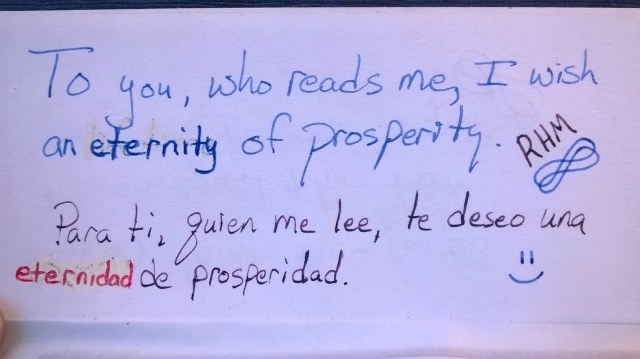 To you, who reads me, I wish
an eternity of prosperity.
RHM
Para ti, quien me lee, te deseo una
eternidad de prosperidad.